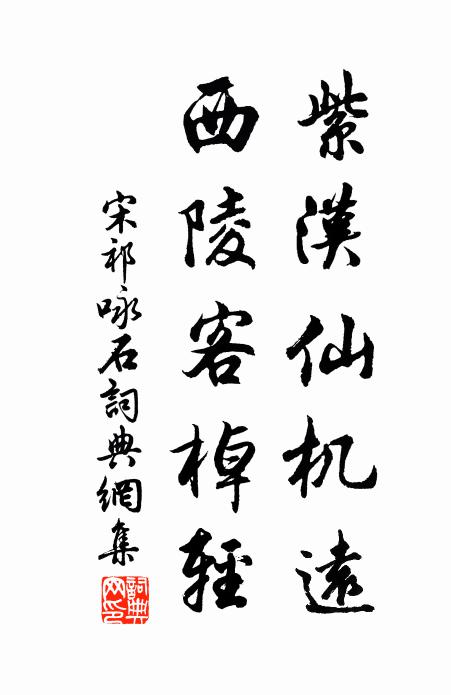 紫漢仙机遠
西陵客棹輕
宋祁咏石詞典網集
詞典網印